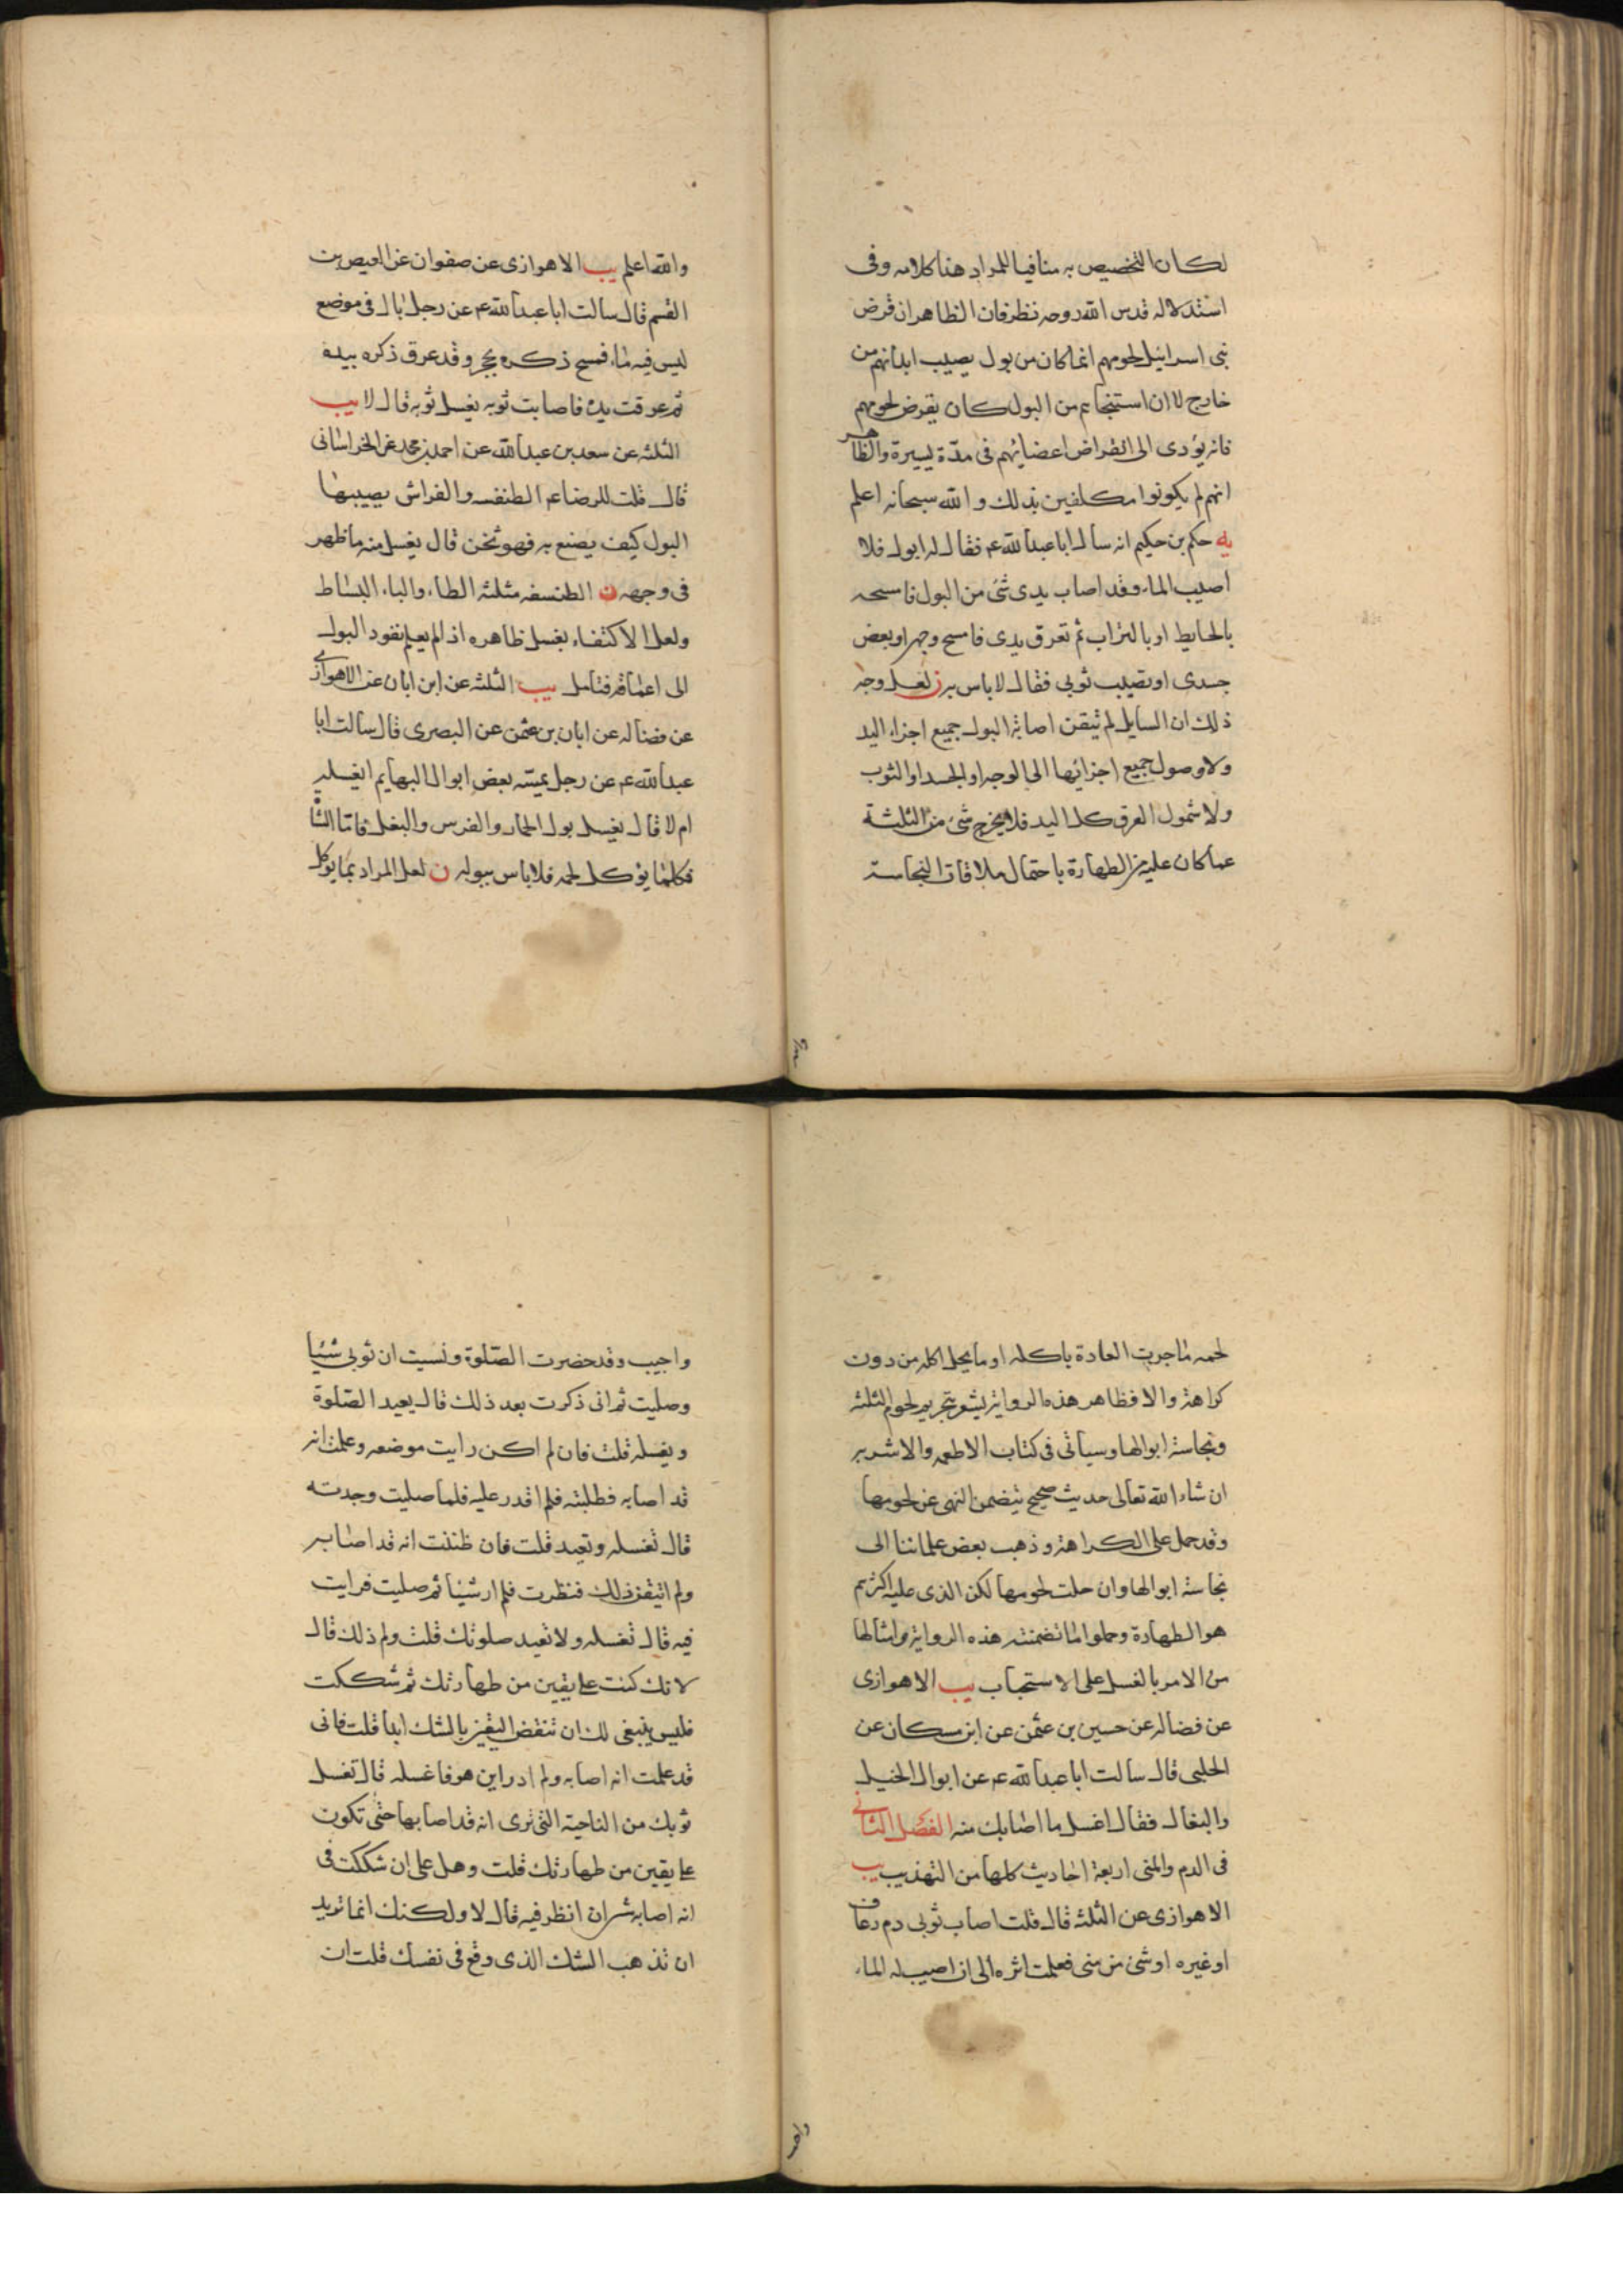 لكان التخصيص به منافيا للمراد هنا كلامه وفى
استدلاله قدس الله روحه نظر فان الظاهر ان قرض
بنى اسرائيل لحومهم انما كان من بول يصيب ابدانهم من
خارج لا ان استنجاءهم من البول كان يقرض لحومهم
فانه يؤدى الى انقراض اعضائهم فى مدّة يسيرة والظاهر
انهم لم يكونوا مكلفين بذلك والله سبحانه اعلم
يه حكم بن حكيم انه سال ابا عبدالله ع فقال له ابول فلا
اصيب الماء وقد اصاب يدى شئ من البول فامسحه
بالحايط او بالتراب ثم تعرق يدى فامسح وجهى او بعض
جسدى او تصيب ثوبى فقال لا باس به ن لعل وجه
ذلك ان السايل لم تيقن اصابة البول جميع اجزاء اليد
ولا وصول جميع اجزائها الى الوجه او الجسد او الثوب
ولا شمول العرق كل اليد فلا يخرج شئ من الثلثة
عما كان عليه من الطهارة باحتمال ملاقات النجاسة
والله اعلم يب الاهوازى عن صفوان عن العيص بن
القسم قال سالت ابا عبدالله ع عن رجل بال فى موضع
ليس فيه ماء فمسح ذكره بحجر وقد عرق ذكره بيده
ثم عرقت يده فاصابت ثوبه يغسل ثوبه قال لا يب
الثلثه عن سعد بن عبدالله عن احمد بن محمد عن الخراسانى
قال قلت للرضا ع الطنفسه والفراش يصيبها
البول كيف يصنع به فهو ثخن قال يغسل منه ما ظهر
فى وجهه ن الطنسفه مثلثه الطاء والباء البساط
ولعل الاكتفاء بغسل ظاهره اذا لم يعلم نفود البول
الى اعماقه فتامل يب الثلثه عن ابن ابان عن الاهوازى
عن فضاله عن ابان بن عثمن عن البصرى قال سالت ابا
عبدالله ع عن رجل يمسّه بعض ابوال البهايم ايغسله
ام لا قال يغسل بول الحمار والفرس والبغل فامّا الشا
فكلما يؤكل لحمه فلا باس ببوله ن لعل المراد بما يوكل
لحمه ما جرت العادة باكله او ما يحل اكله من دون
كراهة والا فظاهر هذه الرواية يشعر بتحريم لحوم الثلثه
ونجاسة ابوالها وسياتى فى كتاب الاطعمه والاشربه
ان شاء الله تعالى حديث صحيح يتضمن النهى عن لحومها
وقد حمل على الكراهة وذهب بعض علمائنا الى
نجاسة ابوالها وان حلت لحومها لكن الذى عليه اكثرهم
هو الطهارة وحملوا ما تضمنته هذه الرواية وامثالها
من الامر بالغسل على الاستحباب يب الاهوازى
عن فضاله عن حسين بن عثمن عن ابن مسكان عن
الحلبى قال سالت ابا عبدالله ع عن ابوال الخيل
والبغال فقال اغسل ما اصابك منه الفصل الثانى
فى الدم والمنى اربعة احاديث كلها من التهذيب يب
الاهوازى عن الثلثه قال قلت اصاب ثوبى دم رعاف
او غيره او شئ من منى فعلمت اثره الى ان اصيب له الماء
واجيب وقد حضرت الصّلوة ونسيت ان ثوبى شيئا
وصليت ثم انى ذكرت بعد ذلك قال يعيد الصّلوة
ويغسله قلت فان لم اكن رايت موضعه وعلمت انه
قد اصابه فطلبته فلم اقدر عليه فلما صليت وجدته
قال تغسله وتعيد قلت فان ظننت انه قد اصابه
ولم اتيقن ذلك فنظرت فلم ار شيئا ثم صليت فرايت
فيه قال تغسله ولا تعيد صلوتك قلت ولم ذلك قال
لانك كنت على يقين من طهارتك ثم شككت
فليس ينبغى لك ان تنقض اليقين بالشك ابدا قلت فانى
قد علمت انه اصابه ولم ادر اين هو فاغسله قال تغسل
ثوبك من الناحية التى ترى انه قد اصابها حتى تكون
على يقين من طهارتك قلت وهل على ان شككت فى
انه اصابه شئ ان انظر فيه قال لا ولكنك انما تريد
ان تذهب الشك الذى وقع فى نفسك قلت ان